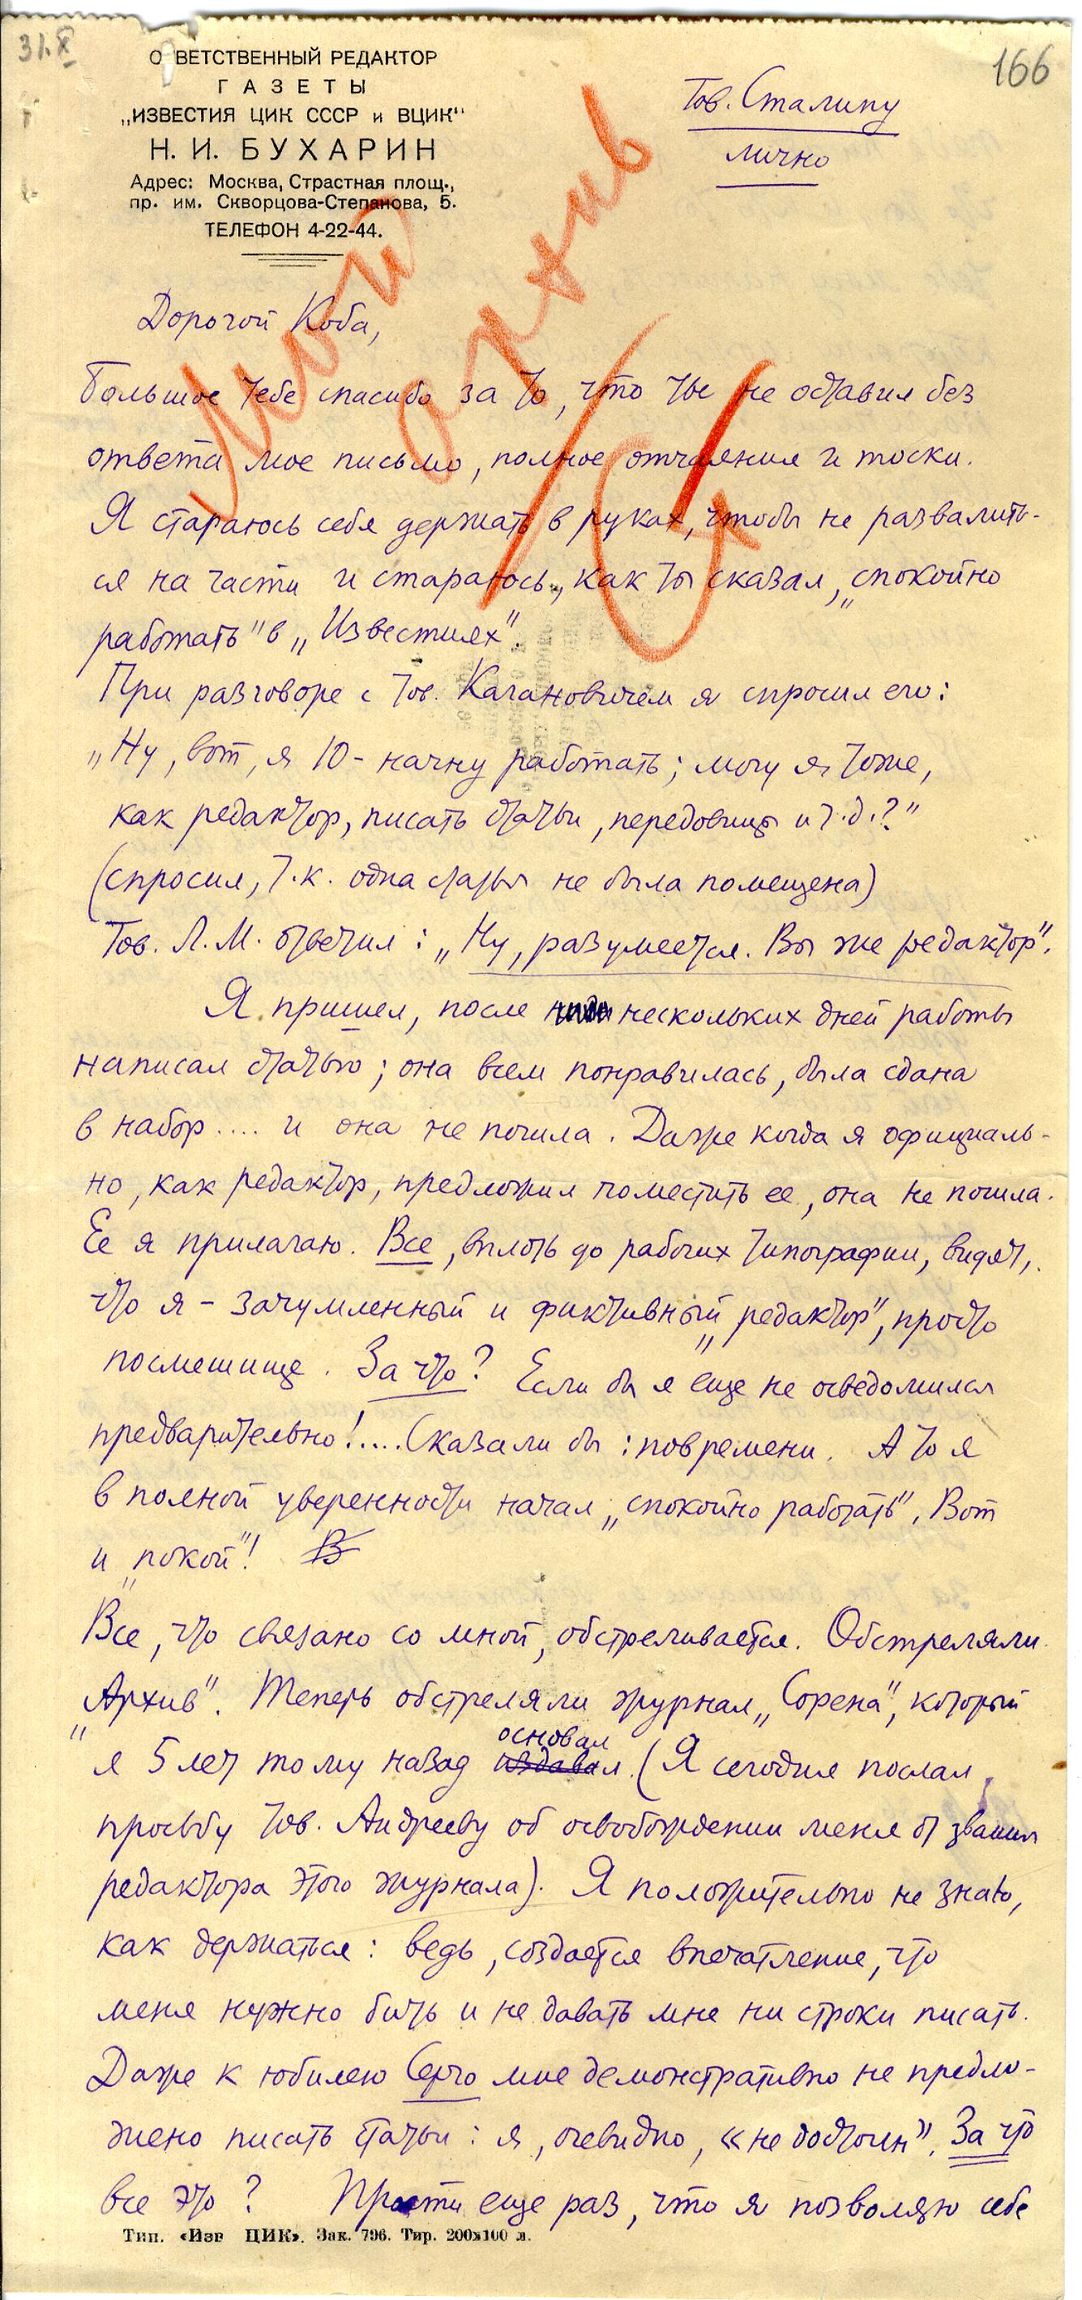 31.X
166
ОТВЕТСТВЕННЫЙ РЕДАКТОР
ГАЗЕТЫ
„ИЗВЕСТИЯ ЦИК СССР и ВЦИК“
Н. И. БУХАРИН
Адрес: Москва, Страстная площ.,
пр. им. Скворцова-Степанова, 5.
ТЕЛЕФОН 4-22-44.
Тов. Сталину
лично
Мой
архив
Дорогой Коба,
Большое тебе спасибо за то, что ты не оставил без
ответа мое письмо, полное отчаяния и тоски.
Я стараюсь себя держать в руках, чтобы не развалить-
ся на части и стараюсь, как ты сказал, „спокойно
работать" в „Известиях".
При разговоре с тов. Кагановичем я спросил его:
„Ну, вот, я 10-начну работать; могу я тоже,
как редактор, писать статьи, передовицы и т.д.?"
(спросил, т.к. одна статья не была помещена)
Тов. Л.М. ответил: „Ну, разумеется. Вы же редактор".
Я пришел, после нескольких дней работы
написал статью; она всем понравилась, была сдана
в набор.... и она не пошла. Даже когда я официаль-
но, как редактор, предложил поместить ее, она не пошла.
Ее я прилагаю. Все, вплоть до рабочих типографии, видят,
что я - зачумленный и фиктивный „редактор", просто
посмешище. За что? Если бы я еще не осведомился
предварительно!.... Сказали бы: повремени. А то я
в полной уверенности начал „спокойно работать". Вот
и „покой"! В
Все, что связано со мной, обстреливается. Обстреляли
„Архив". Теперь обстреляли журнал „Сорена", который
основал
я 5 лет тому назад издавал. (Я сегодня послал
просьбу тов. Андрееву об освобождении меня от звания
редактора этого журнала). Я положительно не знаю,
как держаться: ведь, создается впечатление, что
меня нужно бить и не давать мне ни строки писать.
Даже к юбилею Серго мне демонстративно не предло-
жено писать статьи: я, очевидно, «не достоин». За что
все это? Прости еще раз, что я позволяю себе
Тип. «Изв ЦИК». Зак. 796. Тир. 200х100 л.